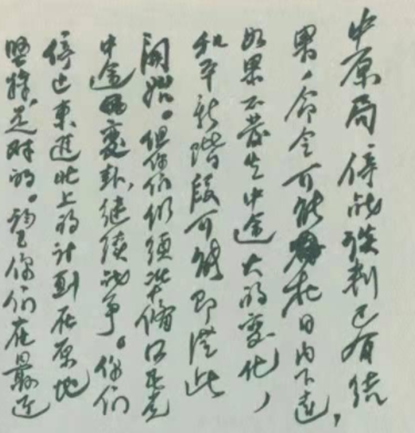 中原局停战谈判已有结
果，命令可能在日内下达，
如果不发生中途大的变化，
和平新阶段可能即从此
開始。但你们仍须准備国民党
中途变卦，继续战争。你们
停止東進北上的计劃在原地
坚持，是对的。望你们在最近